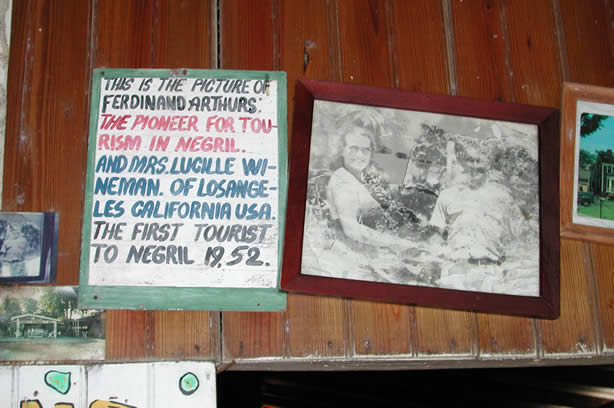 THIS IS THE PICTURE OF
FERDINAND ARTHURS:
THE PIONEER FOR TOU-
RISM IN NEGRIL.
AND MRS. LUCILLE WI-
NEMAN. OF LOSANGE-
LES CALIFORNIA USA.
THE FIRST TOURIST
TO NEGRIL 19,52.